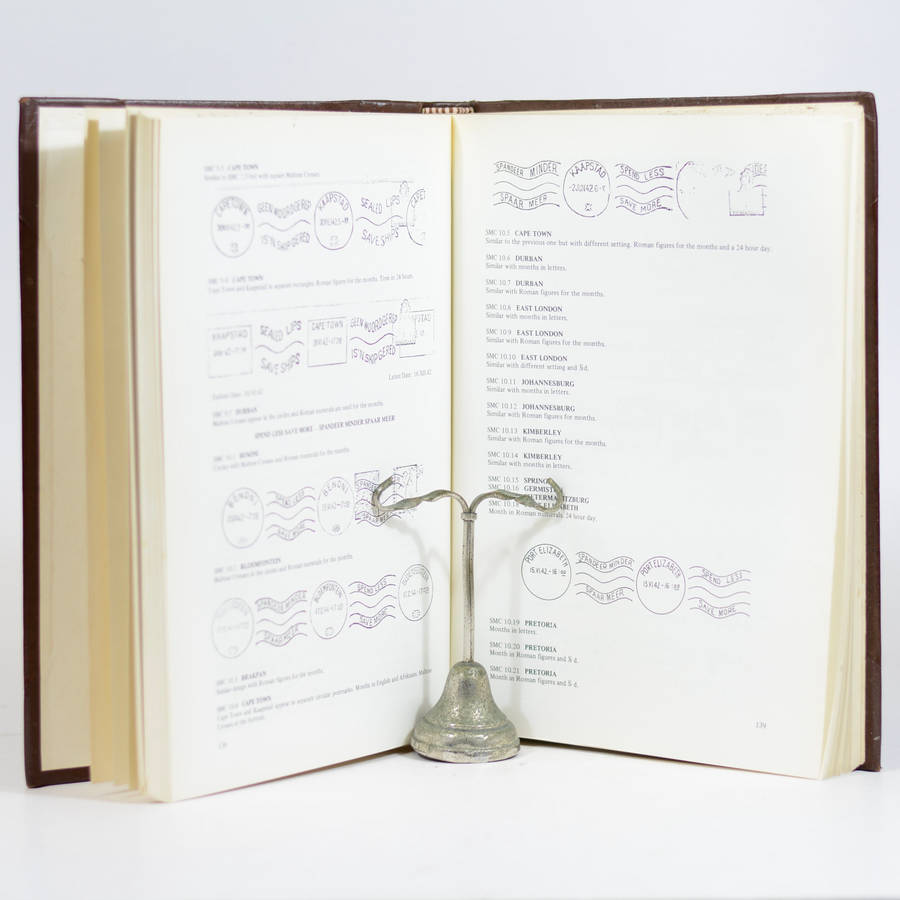 CAPE TOWN
CAPE TOWN
GEEN WOORDGEREP
KAAPSTAD
SEALED LIPS
IS'N SKIPGERED
SAVE SHIPS
CAPE TOWN
Cape Town and Kaapstad in separate rectangles. Roman figures for the months. Time in 24 hours.
KAAPSTAD
SEALED LIPS
CAPE TOWN
GEEN WOORDGEREP
SAVE SHIPS
IS'N SKIPGERED
Latest Date:
DURBAN
Maltese Crosses appear in the circles and Roman numerals are used for the months.
SPEND LESS SAVE MORE – SPANDEER MINDER SPAAR MEER
BENONI
Circles with Maltese Crosses and Roman numerals for the months.
BENONI
SPEND LESS
BENONI
SAVE MORE
BLOEMFONTEIN
Maltese Crosses in the circles and Roman numerals for the months.
SPANDEER MINDER
BLOEMFONTEIN
SPEND LESS
SPAAR MEER
SAVE MORE
BRAKPAN
Similar design with Roman figures for the months.
SMC 10.4 CAPE TOWN
Cape Town and Kaapstad appear in separate circular postmarks. Months in English and Afrikaans. Maltese
Crosses at the bottom.
SPANDEER MINDER
KAAPSTAD
SPEND LESS
SPAAR MEER
SAVE MORE
SMC 10.5 CAPE TOWN
Similar to the previous one but with different setting. Roman figures for the months and a 24 hour day.
SMC 10.6 DURBAN
Similar with months in letters.
SMC 10.7 DURBAN
Similar with Roman figures for the months.
SMC 10.8 EAST LONDON
Similar with months in letters.
SMC 10.9 EAST LONDON
Similar with Roman figures for the months.
SMC 10.10 EAST LONDON
Similar with different setting and S d.
SMC 10.11 JOHANNESBURG
Similar with months in letters.
SMC 10.12 JOHANNESBURG
Similar with Roman figures for months.
SMC 10.13 KIMBERLEY
Similar with Roman figures for the months.
SMC 10.14 KIMBERLEY
Similar with months in letters.
SMC 10.15
SMC 10.16
Month in Roman numerals. 24 hour day.
PORT ELIZABETH
SPANDEER MINDER
PORT ELIZABETH
SPEND LESS
15.VI.42.-16
SPAAR MEER
15.VI.42.-16
SAVE MORE
SMC 10.19 PRETORIA
Months in letters.
SMC 10.20 PRETORIA
Month in Roman figures and
SMC 10.21 PRETORIA
Month in Roman figures and
139